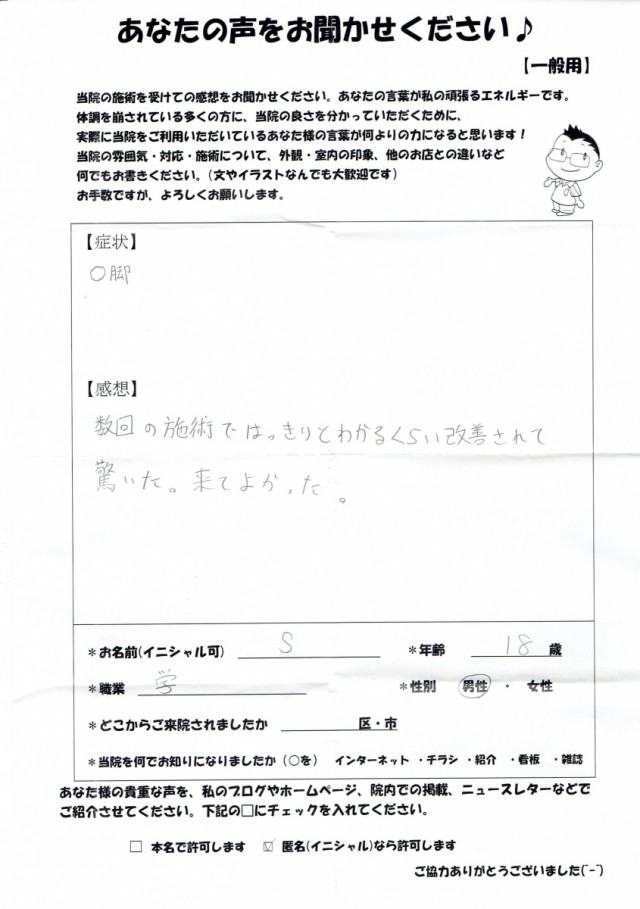 あなたの声をお聞かせください♪
【一般用】
当院の施術を受けての感想をお聞かせください。あなたの言葉が私の頑張るエネルギーです。
体調を崩されている多くの方に、当院の良さを分かっていただくために、
実際に当院をご利用いただいているあなた様の言葉が何よりの力になると思います!
当院の雰囲気・対応・施術について、外観・室内の印象、他のお店との違いなど
何でもお書きください。(文やイラストなんでも大歓迎です)
お手数ですが、よろしくお願いします。
【症状】
〇脚
【感想】
数回の施術ではっきりとわかるくらい改善されて
驚いた。来てよかった。
*お名前(イニシャル可) S *年齢 18 歳
*職業 学 *性別 男性 ・ 女性
*どこからご来院されましたか 区・市
*当院を何でお知りになりましたか(〇を) インターネット ・チラシ ・紹介 ・看板 ・雑誌
あなた様の貴重な声を、私のブログやホームページ、院内での掲載、ニュースレターなどで
ご紹介させてください。下記の□にチェックを入れてください。
□ 本名で許可します ☑ 匿名(イニシャル)なら許可します
ご協力ありがとうございました(^-^)